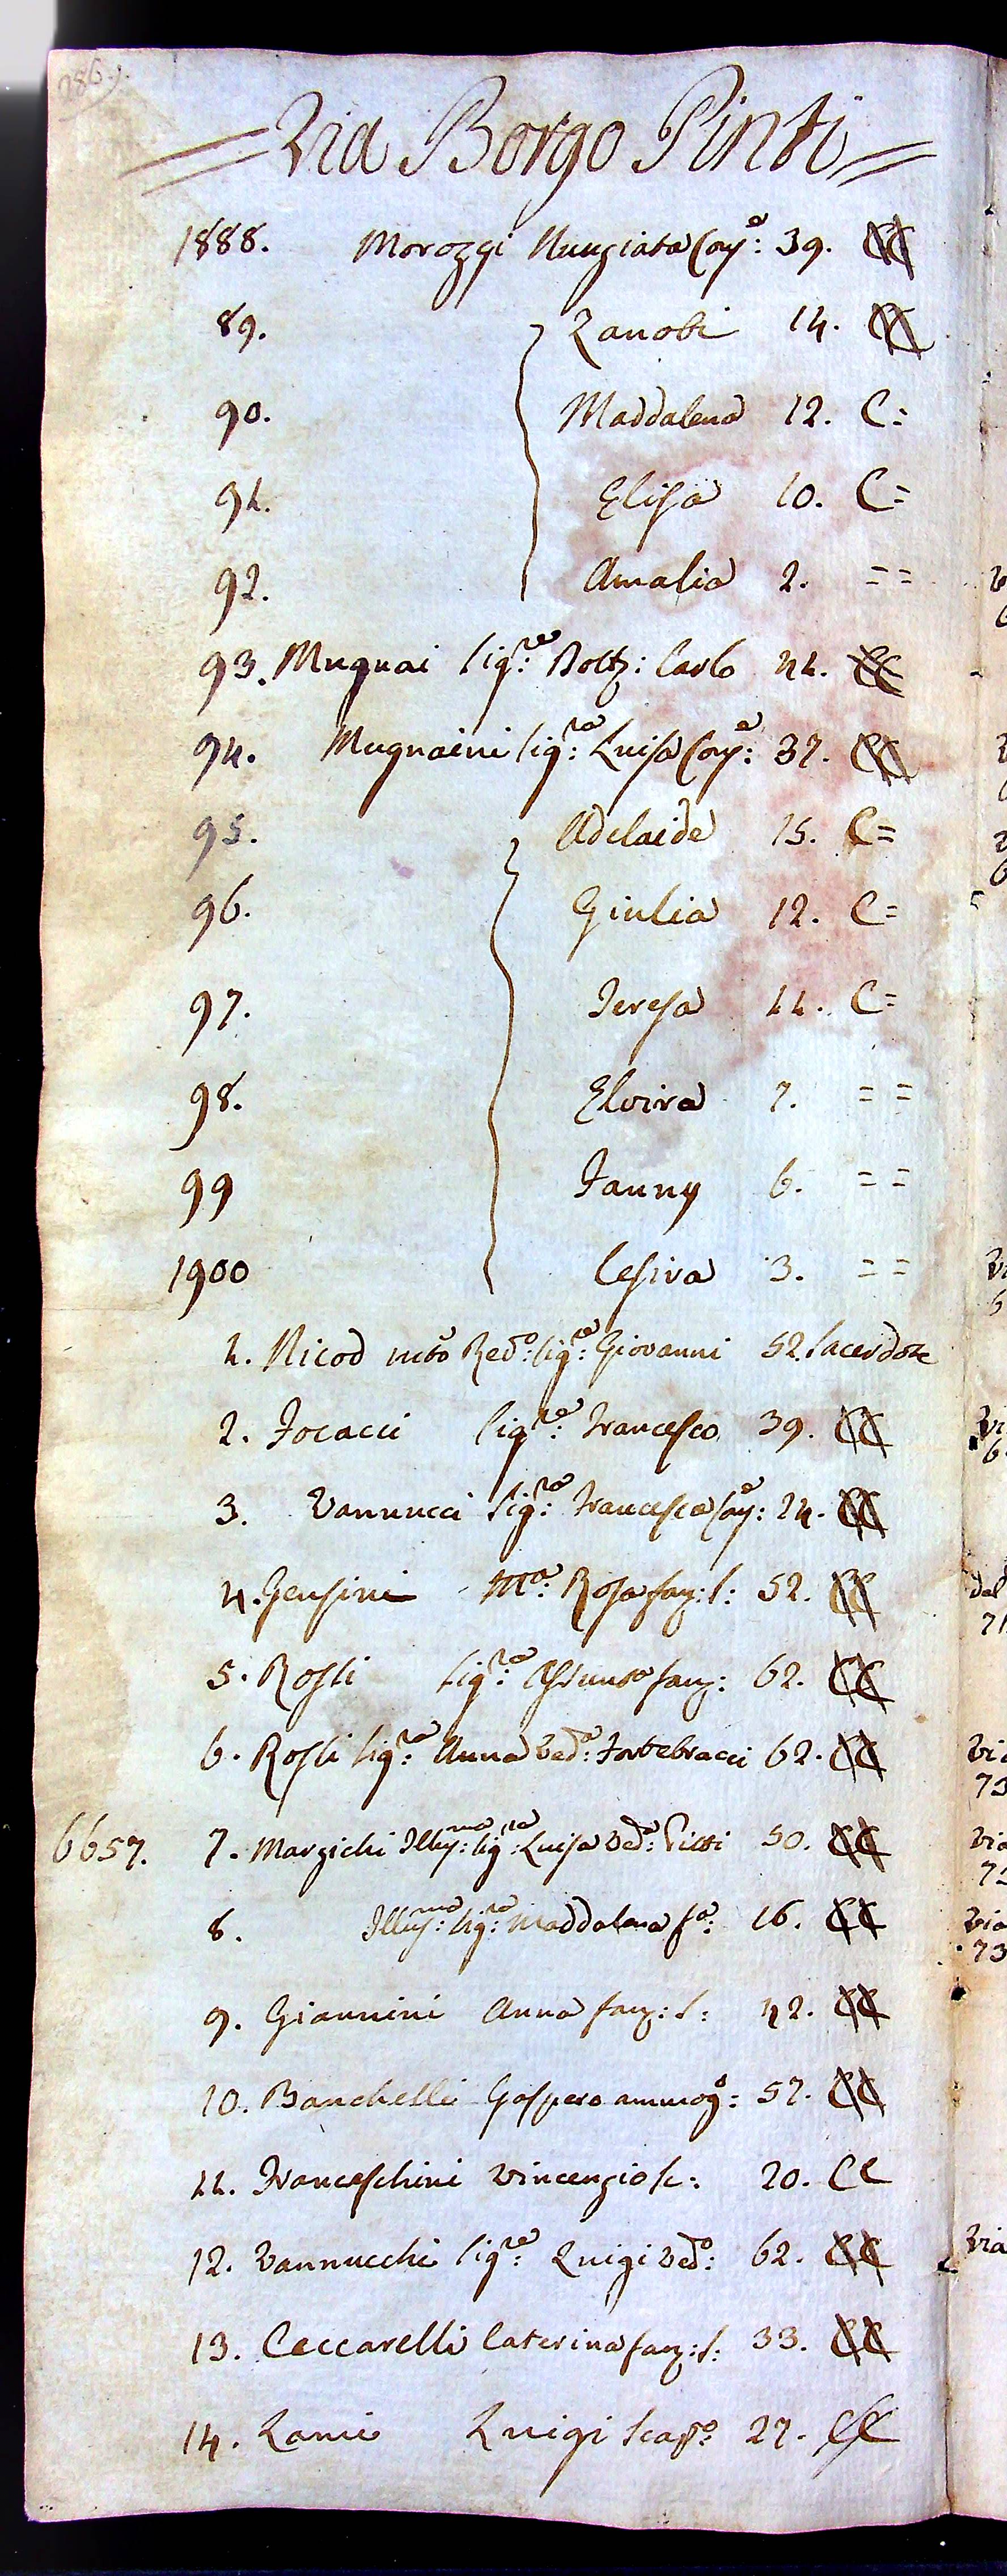 286.
= Via Borgo Pinti =
1888. Morozzi Nunziata Con:e 39. CC
89. Zanobi 14. CC
90. Maddalena 12. C=
91. Elisa 10. C=
92. Amalia 2. = =
93. Mugnai Sig:re Dott: Carlo 41. CC
94. Mugnaini Sig:ra Luisa Con:e 37. CC
95. Adelaide 15. C=
96. Giulia 12. C=
97. Teresa 11. C=
98. Elvira 7. = =
99 Fanny 6. = =
1900 Cesira 3. = =
1. Nicod Red:o Sig:re Giovanni 52. Sacerdote
2. Focacci Sig:re Francesco 39. CC
3. Vannucci Sig:ra Francesca Con:e 24. CC
4. Gensini Ma: Rosa fan: S: 52. CC
5. Rossi Sig:ra Assunta fan: 62. CC
6. Rossi Sig:ra Anna Ved:a Fortebracci 62. CC
6657. 7. Marzichi Illus:ma Sig:ra Luisa Ved:a Pitti 50. CC
8. Illus:ma Sig:ra Maddalena fa: 16. CC
9. Giannini Anna fan: S: 42. CC
10. Banchelli Gaspero ammog:o 57. CC
11. Franceschini Vincenzio Sc: 20. CC
12. Vannucchi Sig:re Luigi Ved:o 62. CC
13. Ceccarelli Caterina fan: S: 33. CC
14. Lami Luigi Scap:o 27. CC